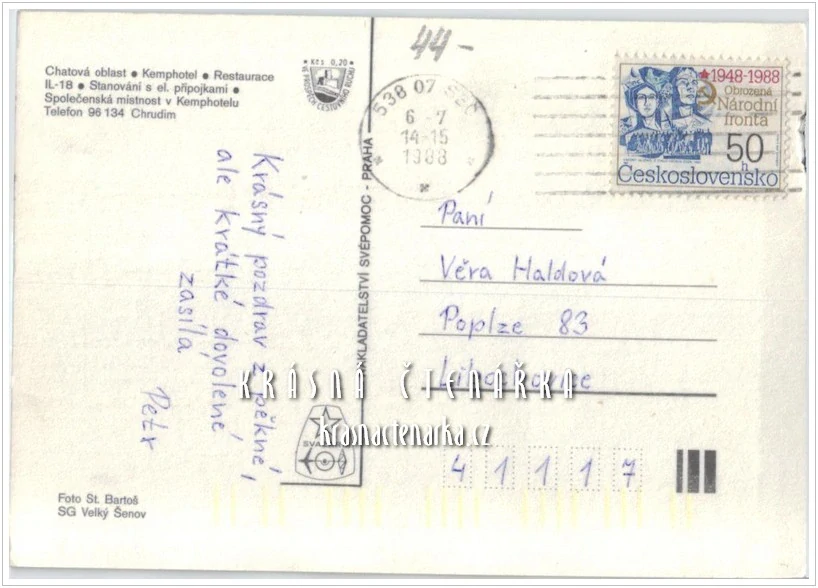 Chatová oblast • Kemphotel • Restaurace
IL-18 • Stanování s el. přípojkami •
Společenská místnost v Kemphotelu
Telefon 96 134 Chrudim
Kčs 0,20
VE PROSPĚCH CESTOVNÍHO RUCHU
44-
538 07 SEČ
6-7
14-15
1988
1948-1988
Obrozená
Národní
fronta
50 h
Československo
NAKLADATELSTVÍ SVÉPOMOC - PRAHA
Krásný pozdrav z pěkné,
ale krátké dovolené
zasílá
Petr
Paní
Věra Haldová
Poplze 83
Libochovice
KRÁSNÁ ČTENÁŘKA
krasnactenarka.cz
41117
Foto St. Bartoš
SG Velký Šenov